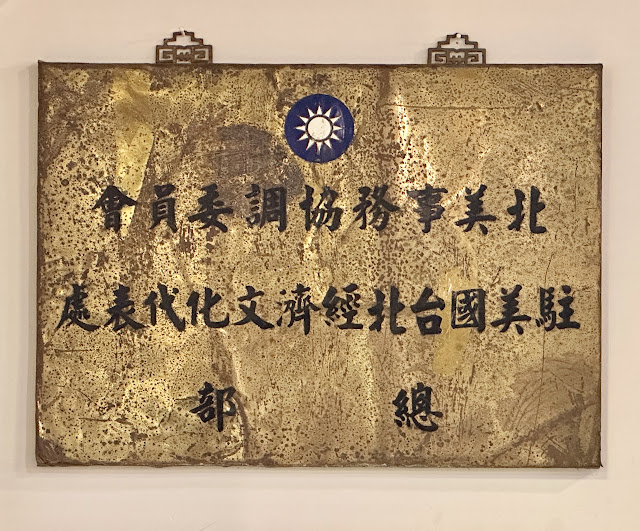 北美事務協調委員會
駐美國台北經濟文化代表處
總部